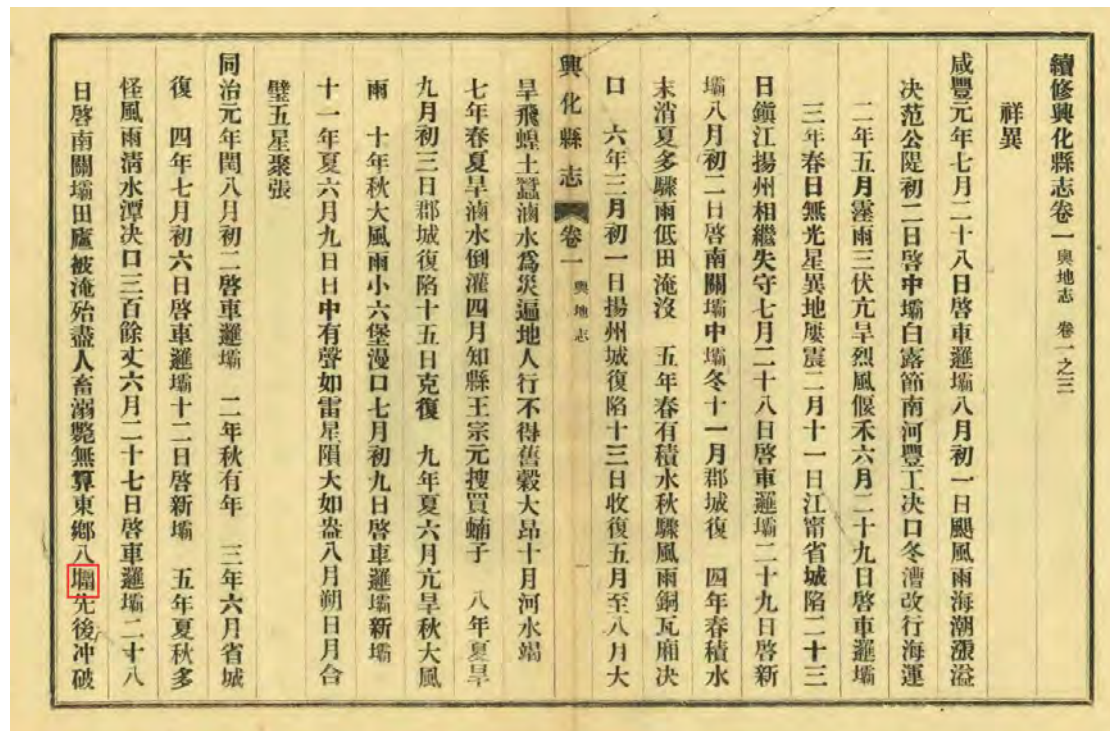 續修興化縣志卷一 輿地志 卷一之三
祥異
咸豐元年七月二十八日啓車邏壩八月初一日颶風雨海潮漲溢
决范公隄初二日啓中壩白露節南河豐工决口冬漕改行海運
二年五月霪雨三伏亢旱烈風偃禾六月二十九日啓車邏壩
三年春日無光星異地屢震二月十一日江甯省城陷二十三
日鎭江揚州相繼失守七月二十八日啓車邏壩二十九日啓新
壩八月初二日啓南關壩中壩冬十一月郡城復 四年春積水
未消夏多驟雨低田淹沒 五年春有積水秋驟風雨銅瓦廂决
口 六年三月初一日揚州城復陷十三日收復五月至八月大
興化縣志 卷一 輿地志 一
旱飛蝗土蠶滷水爲災遍地人行不得舊穀大昂十月河水竭
七年春夏旱滷水倒灌四月知縣王宗元搜買蝻子 八年夏旱
九月初三日郡城復陷十五日克復 九年夏六月亢旱秋大風
雨 十年秋大風雨小六堡漫口七月初九日啓車邏壩新壩
十一年夏六月九日日中有聲如雷星隕大如盎八月朔日月合
璧五星聚張
同治元年閏八月初二啓車邏壩 二年秋有年 三年六月省城
復 四年七月初六日啓車邏壩十二日啓新壩 五年夏秋多
怪風雨淸水潭決口三百餘丈六月二十七日啓車邏壩二十八
日啓南關壩田廬被淹殆盡人畜溺斃無算東鄉八先後冲破